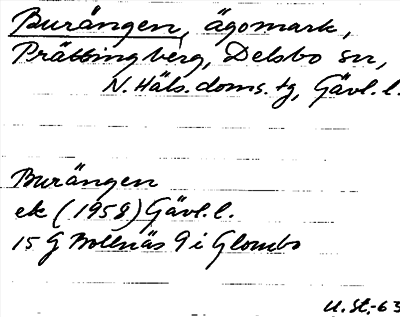 Burängen, ägomark,
Prästingberg, Delsbo sn,
N. Häls. doms. tg, Gävl. l.
Burängen
ek (1958) Gävl. l.
15 G Bollnäs 9 i Glombo
U. St. -63